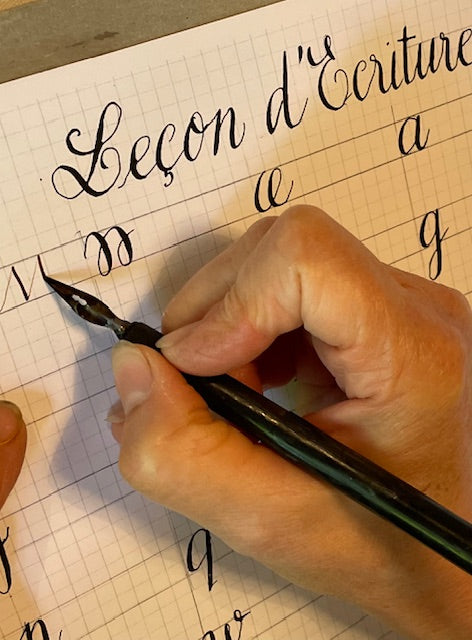 Leçon d'Ecriture
œ a
g
q
w